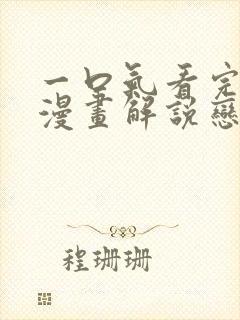 一口氣看完
漫畫解說戀
程珊珊